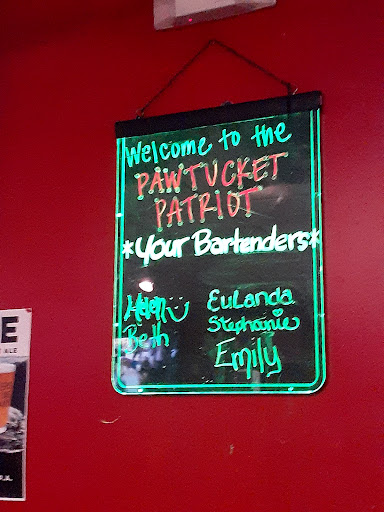 Welcome to the
PAWTUCKET
PATRIOT
*Your Bartenders*
Helen
Beth
EuLanda
Stephanie
Emily
E
ALE
P.A.